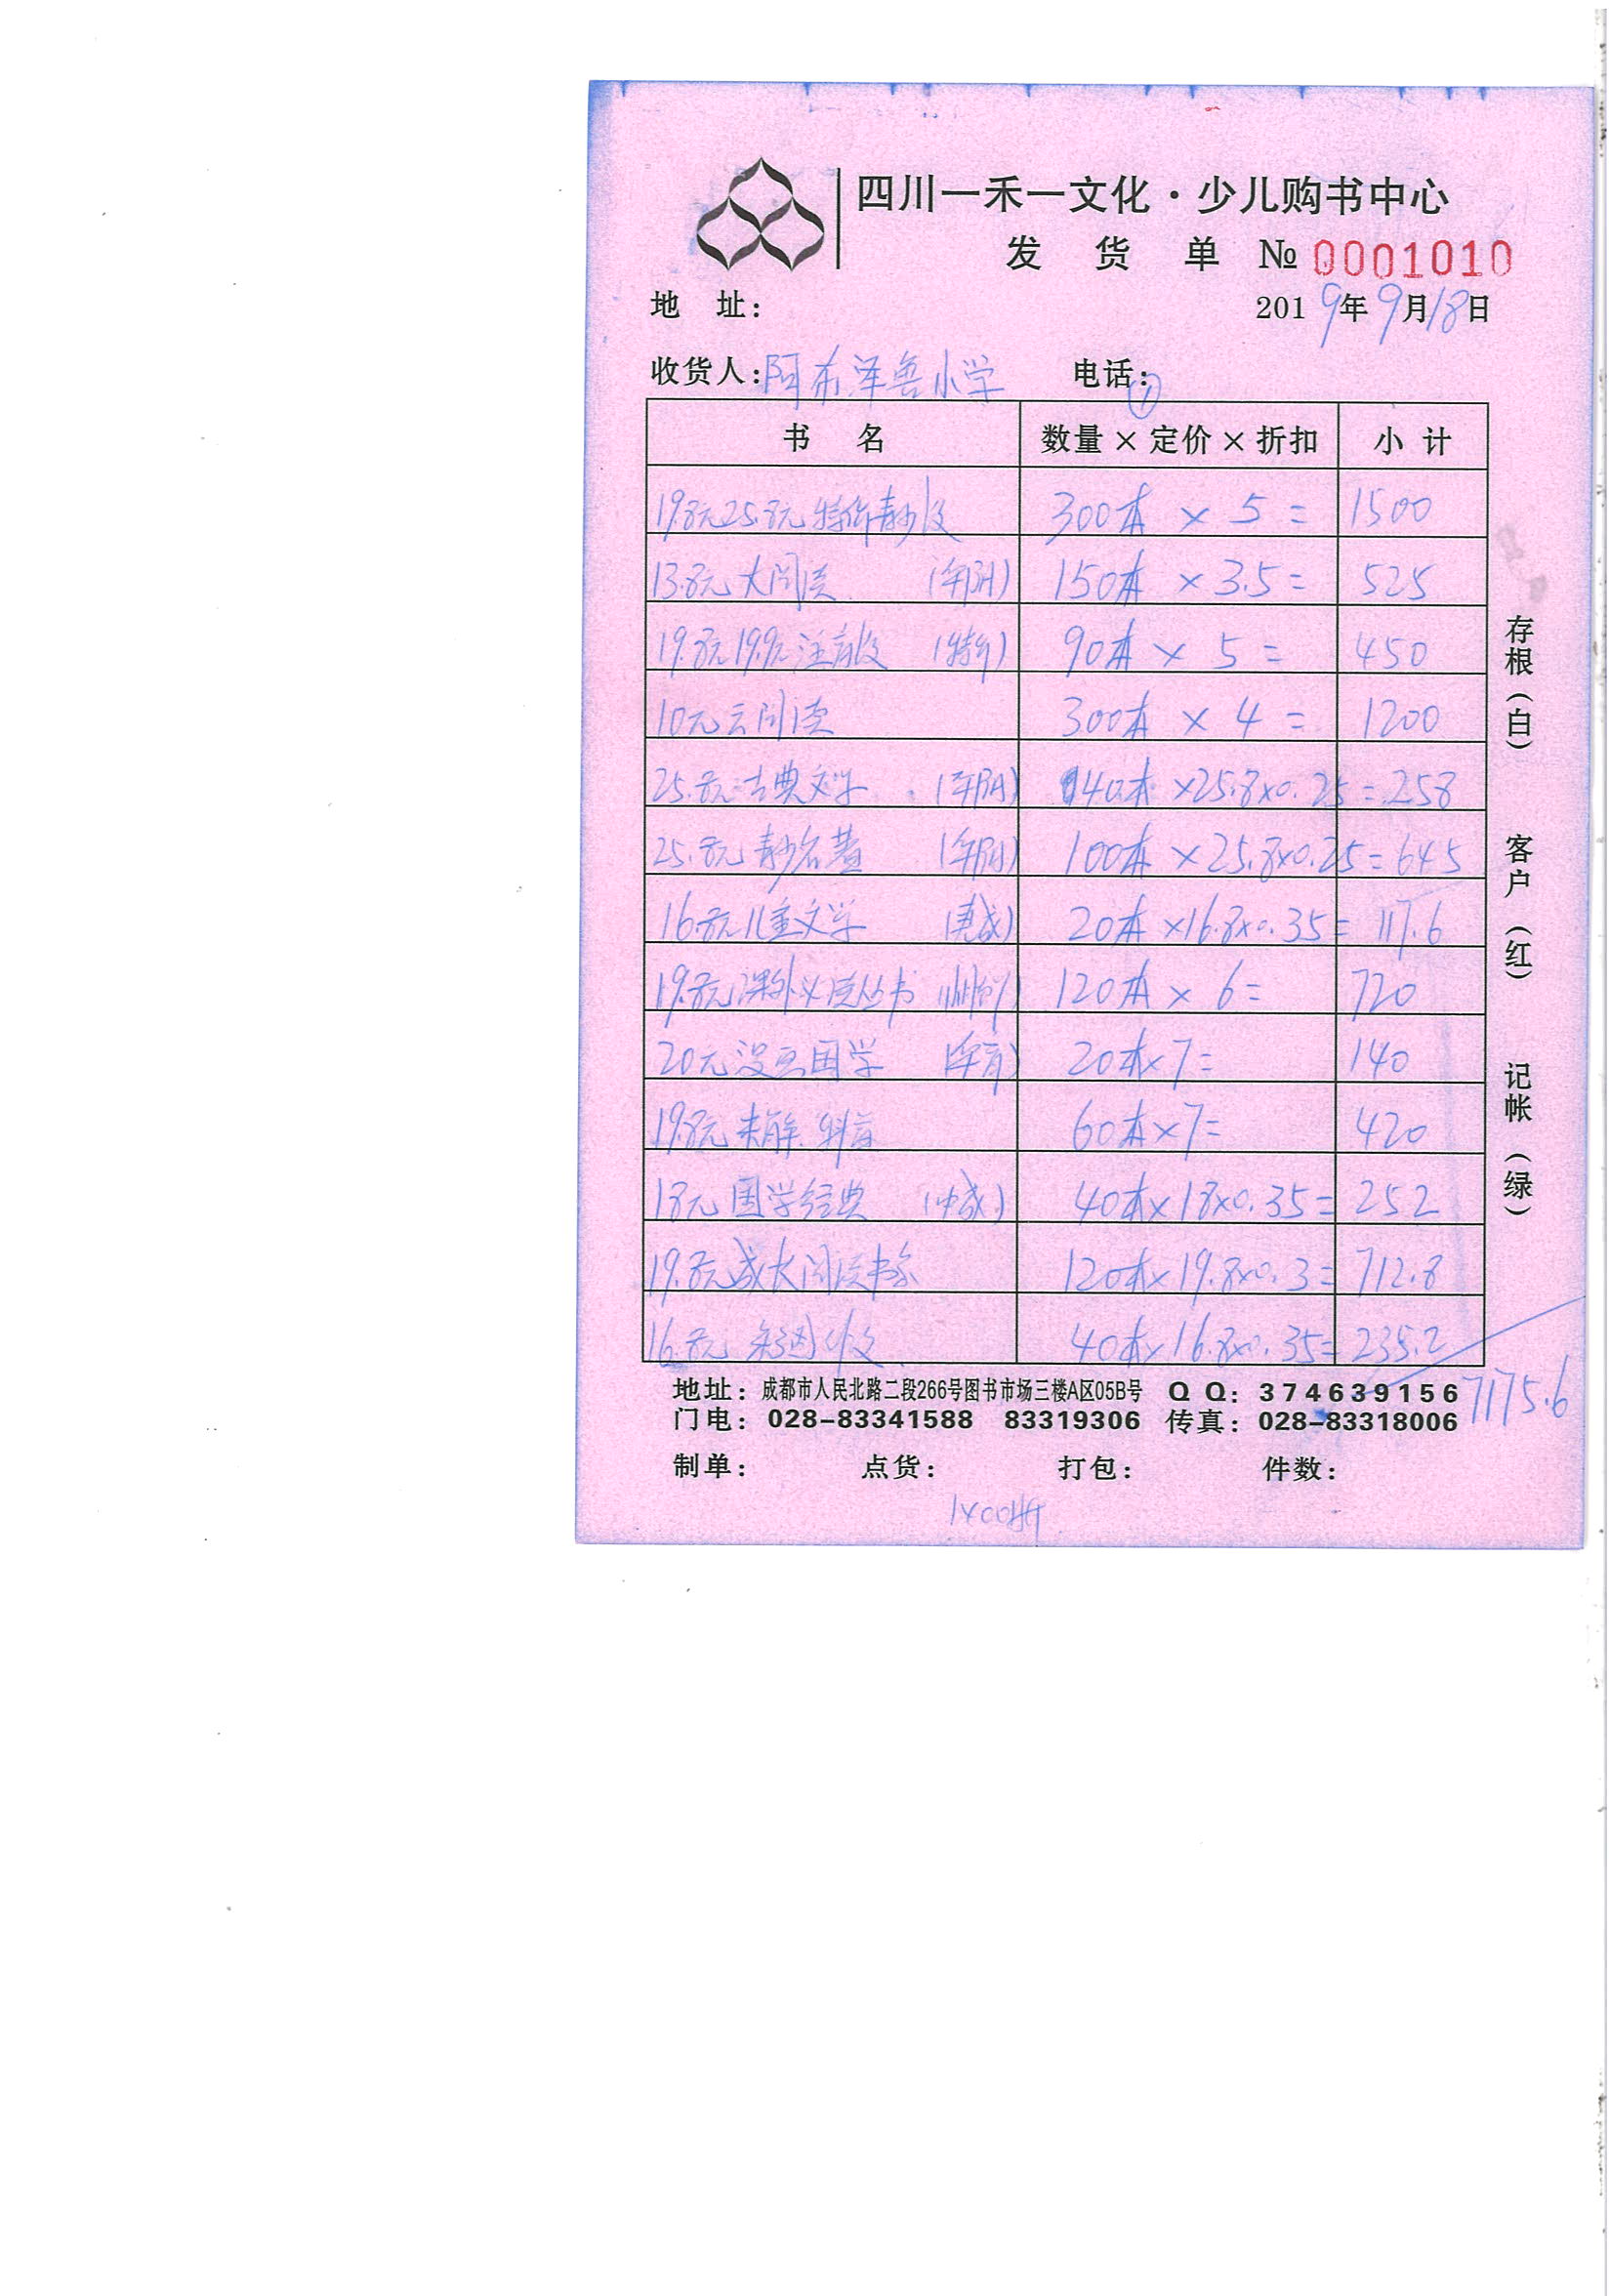 四川一禾一文化·少儿购书中心
发 货 单 № 0001010
地 址:
2019年9月18日
收货人:阿布泽鲁小学 电话:
①
书 名 数量×定价×折扣 小 计
19.8元25.8元特价青少版 300本 × 5 = 1500
13.8元大阅读 150本 × 3.5= 525
19.8元19.9元注音版 (特价) 90本 × 5 = 450
10元云阅读 300本 × 4 = 1200
25.8元古典文学 40本 ×25.8×0.25=258
25.8元青少名著 100本 ×25.8×0.25=645
16.8元儿童文学 20本 ×16.8×0.35= 117.6
19.8元课外必读丛书 120本 × 6= 720
20元没点国学 20本×7= 140
19.8元未解.科音 60本×7= 420
18元国学经典 40本×18×0.35= 252
19.8元成长阅读书系 120本×19.8×0.3= 712.8
16.8元 40本×16.8×0.35= 235.2
7175.6
存根(白) 客户(红) 记帐(绿)
地址:成都市人民北路二段266号图书市场三楼A区05B号 QQ:374639156
门电:028-83341588 83319306 传真:028-83318006
制单: 点货: 打包: 件数: